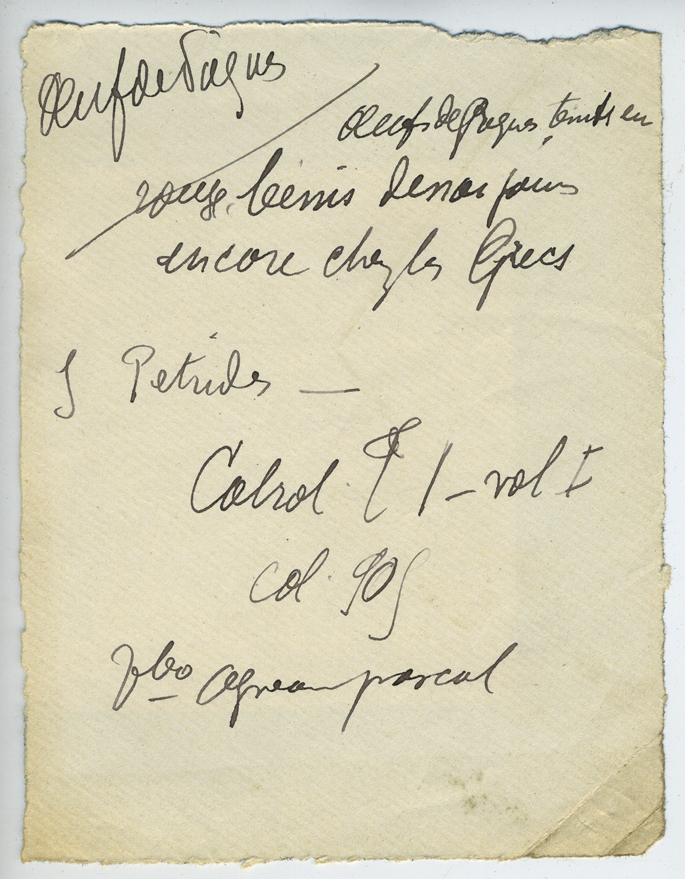 Œuf de Pâques
Œufs de Pâques teints en
rouge, bénis de nos jours
encore chez les Grecs
S Petrides —
Cabrol T I – vol I
col. 905
Vbo Agneau pascal